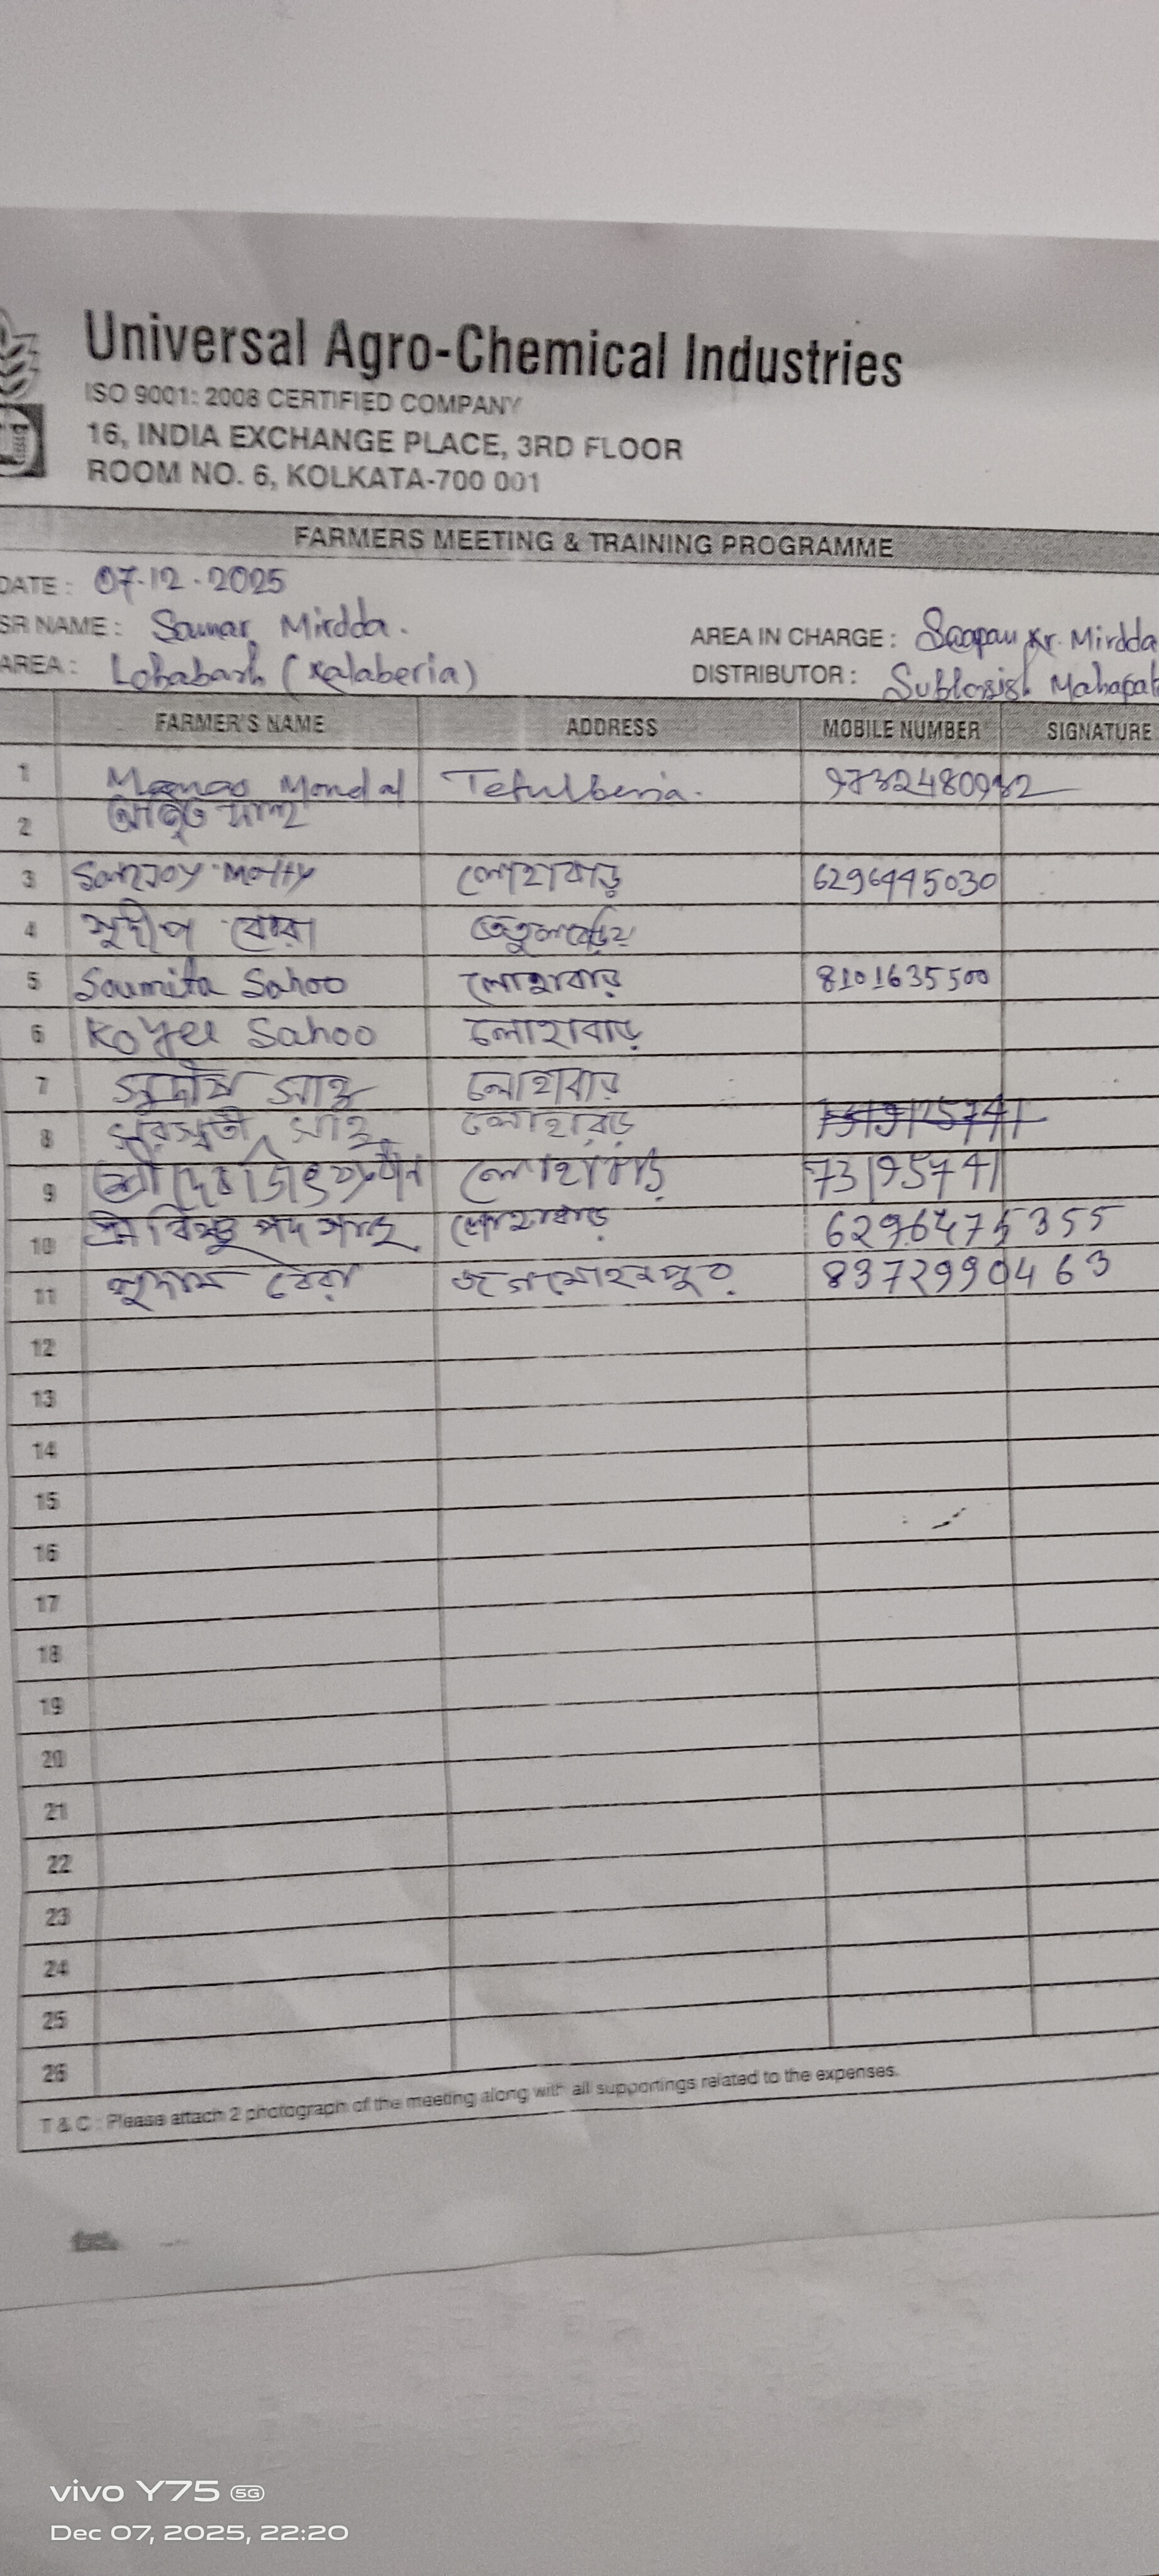 Universal Agro-Chemical Industries
ISO 9001: 2008 CERTIFIED COMPANY
16, INDIA EXCHANGE PLACE, 3RD FLOOR
ROOM NO. 6, KOLKATA-700 001
FARMERS MEETING & TRAINING PROGRAMME
DATE : 07.12.2025
SR NAME : Mirdda. AREA IN CHARGE : Kr. Mirdda
AREA : Lohabarh (Kalaberia) DISTRIBUTOR :
FARMER'S NAME ADDRESS MOBILE NUMBER SIGNATURE
1 Mondal Tetulberia.
2
3 Sanjoy লোহাবাড় 6296445030
4 সুদীপ বেরা
5 Soumita Sahoo লোহাবাড় 8101635500
6 Sahoo লোহাবাড়
7 সাহু লোহাবাড়
8 সরস্বতী সাহু
9 লোহাবাড় 731957411
10 শ্রী বিষ্ণু পদ সাহু লোহাবাড় 6296475355
11 সুদাম বেরা জগমোহনপুর 8372990463
12
13
14
15
16
17
18
19
20
21
22
23
24
25
26
T & C : Please attach 2 photograph of the meeting along with all supportings related to the expenses.
vivo Y75 5G
Dec 07, 2025, 22:20